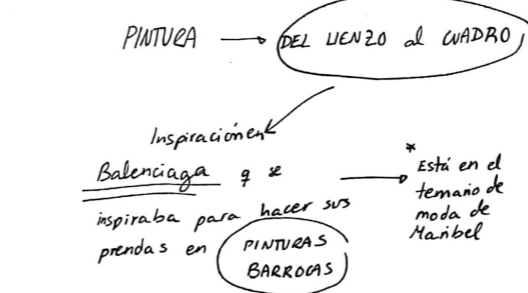 PINTURA → DEL LIENZO al CUADRO
Inspiración en
Balenciaga q se
inspiraba para hacer sus
prendas en PINTURAS
BARROCAS
* Está en el
temario de
moda de
Maribel